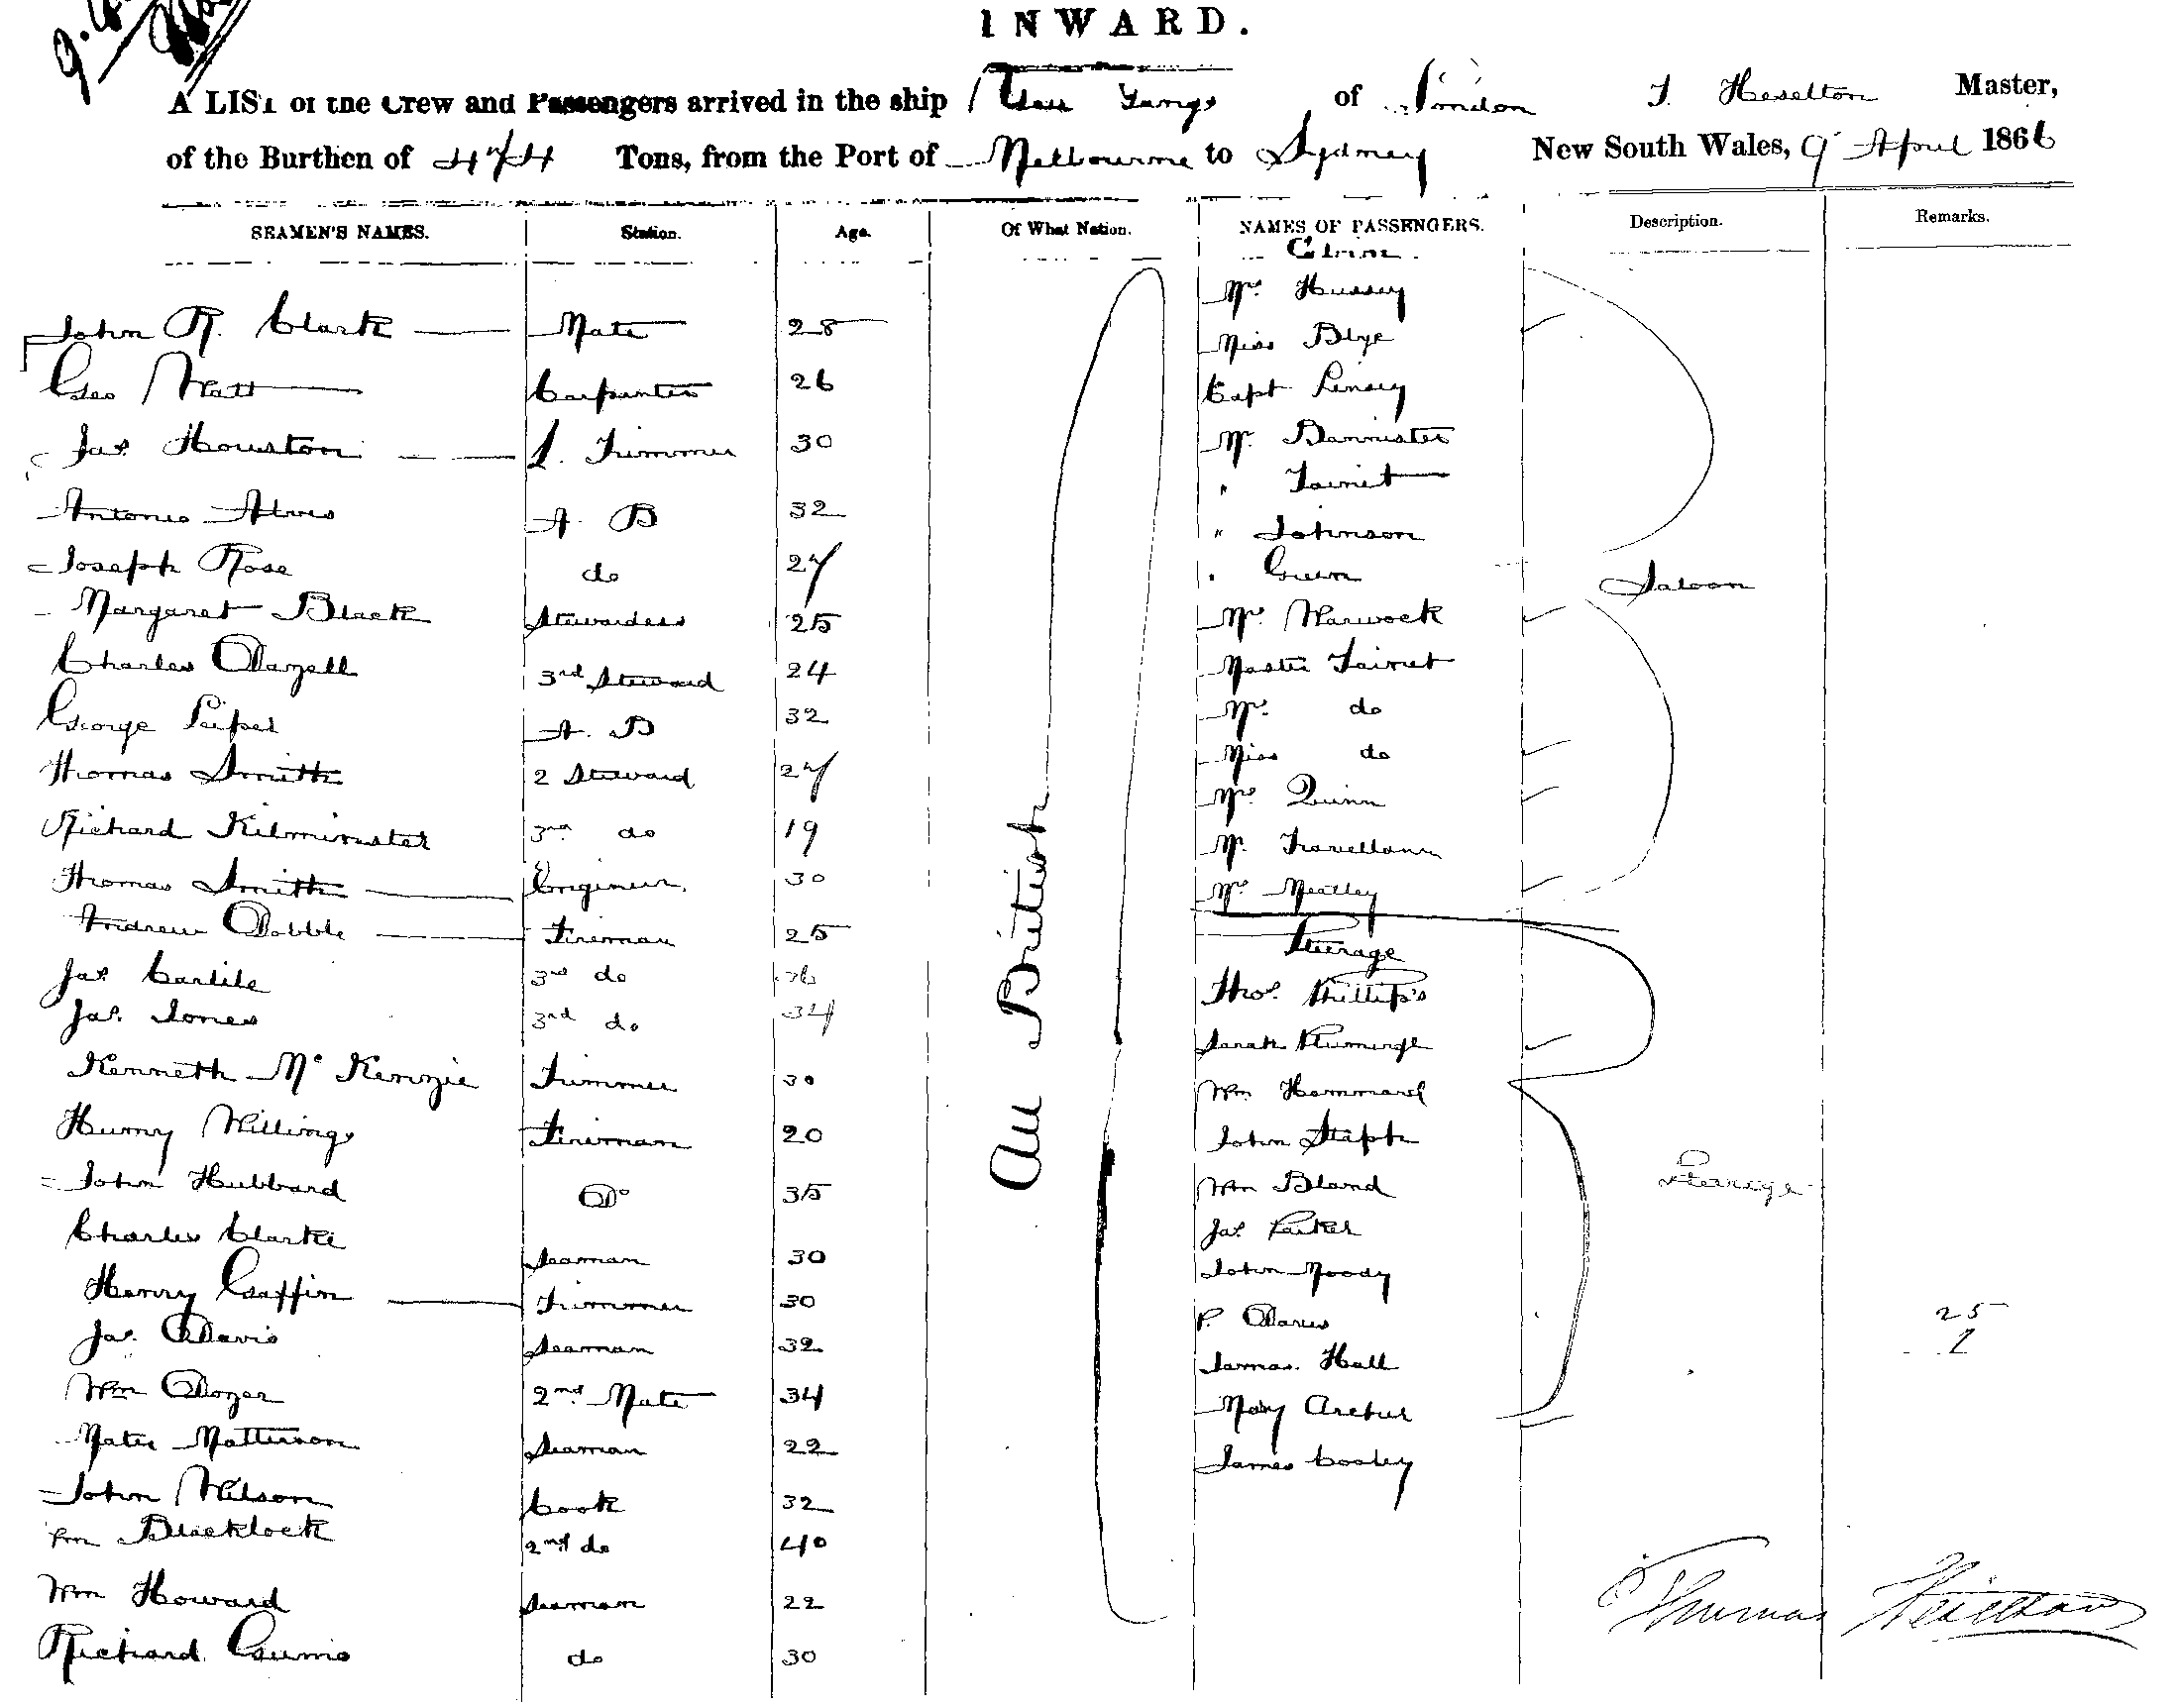 INWARD.
A LIST of the Crew and Passengers arrived in the ship Yangs of London T. Heselton Master,
of the Burthen of 474 Tons, from the Port of Melbourne to Sydney New South Wales, 9 April 1866
SEAMEN'S NAMES. Station. Age. Of What Nation. NAMES OF PASSENGERS. Description. Remarks.
John R. Clark Mate 28
Geo Watt Carpenter 26
Jas Houston Trimmer 30
Antonio Alves A B 32
Joseph Rose do 27
Margaret Black Stewardess 25
Charles Dazell 3rd Steward 24
George A. B 32
Thomas Smith 2 Steward 27
Richard Kilminster 3rd do 19
Thomas Smith Engineer 30
Andrew Dobble Fireman 25
Jas Carlile 3rd do
Jas. Jones 3rd do 34
Kenneth McKenzie Trimmer 30
Henry Willings Fireman 20
John Hubbard Do 35
Charles Clarke Seaman 30
Henry Gaffin Trimmer 30
Jas. Davis Seaman 32
Wm Dozer 2nd Mate 34
Matterson Seaman 22
John Wilson Cook 32
Wm Blacklock 2nd do 40
Wm Howard Seaman 22
Richard do 30
All British
Mrs Hussey
Miss Blye
Capt Linsey
Mr. Bannister
" Tairiet
" Johnson
" Green
Mrs. Warwock
Master Tairiet
Mrs. do
Miss do
Mrs Quinn
Mr.
Mrs Neatley
Saloon
Steerage
Thos. Phillips
Sarah
Wm Hammard
John
Wm Bland
Jas Parker
John Moody
P. Davis
James Hall
Mary Archer
James Cooley
Steerage
25
Thomas Heselton